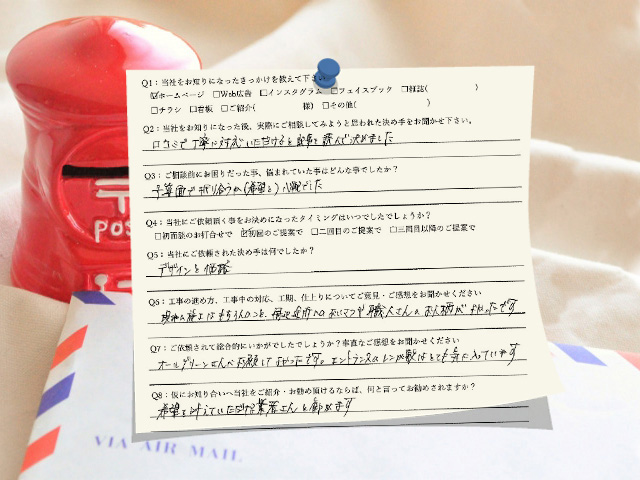 Q1：当社をお知りになったきっかけを教えて下さい。
☑ホームページ □Web広告 □インスタグラム □フェイスブック □雑誌( )
□チラシ □看板 □ご紹介( 様) □その他( )
Q2：当社をお知りになった後、実際にご相談してみようと思われた決め手をお聞かせ下さい。
口コミで丁寧に対応いただけると記事を読んで決めました
Q3：ご相談前にお困りだった事、悩まれていた事はどんな事でしたか？
予算面で折り合うか(希望と)心配でした
Q4：当社にご依頼頂く事をお決めになったタイミングはいつでしたでしょうか？
□初面談のお打合せで ☑初回のご提案で □二回目のご提案で □三回目以降のご提案で
Q5：当社にご依頼された決め手は何でしたか？
デザインと価格
Q6：工事の進め方、工事中の対応、工期、仕上りについてご意見・ご感想をお聞かせください
職人さんのお人柄が よかったです
Q7：ご依頼されて総合的にいかがでしたでしょうか？率直なご感想をお聞かせください
オールグリーンさんへお願いしてよかったです。エントランスのレンガ敷はとても気に入っています
Q8：仮にお知り合いへ当社をご紹介・お勧め頂けるならば、何と言ってお勧めされますか？
希望を叶えていただける業者さんと勧めます
POS
VIA AIR MAIL